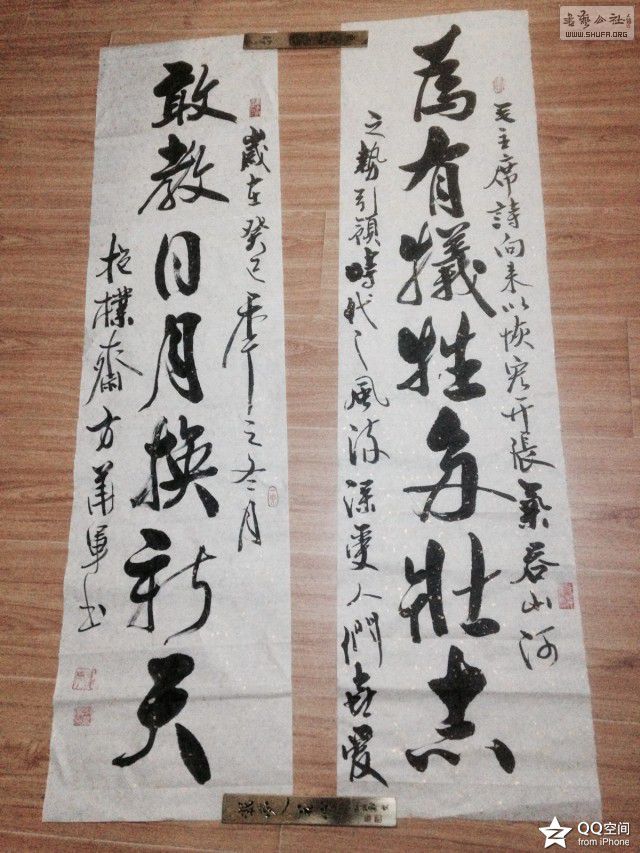 為有犠牲多壮志
毛主席詩向来以恢宏开張氣吞山河
之勢引領時代之風流深受人們喜愛
敢教日月换新天
歲在癸巳年之冬月
抱樸齋方華軍书
書法公社
WWW.SHUFA.ORG
QQ空间
from iPhone